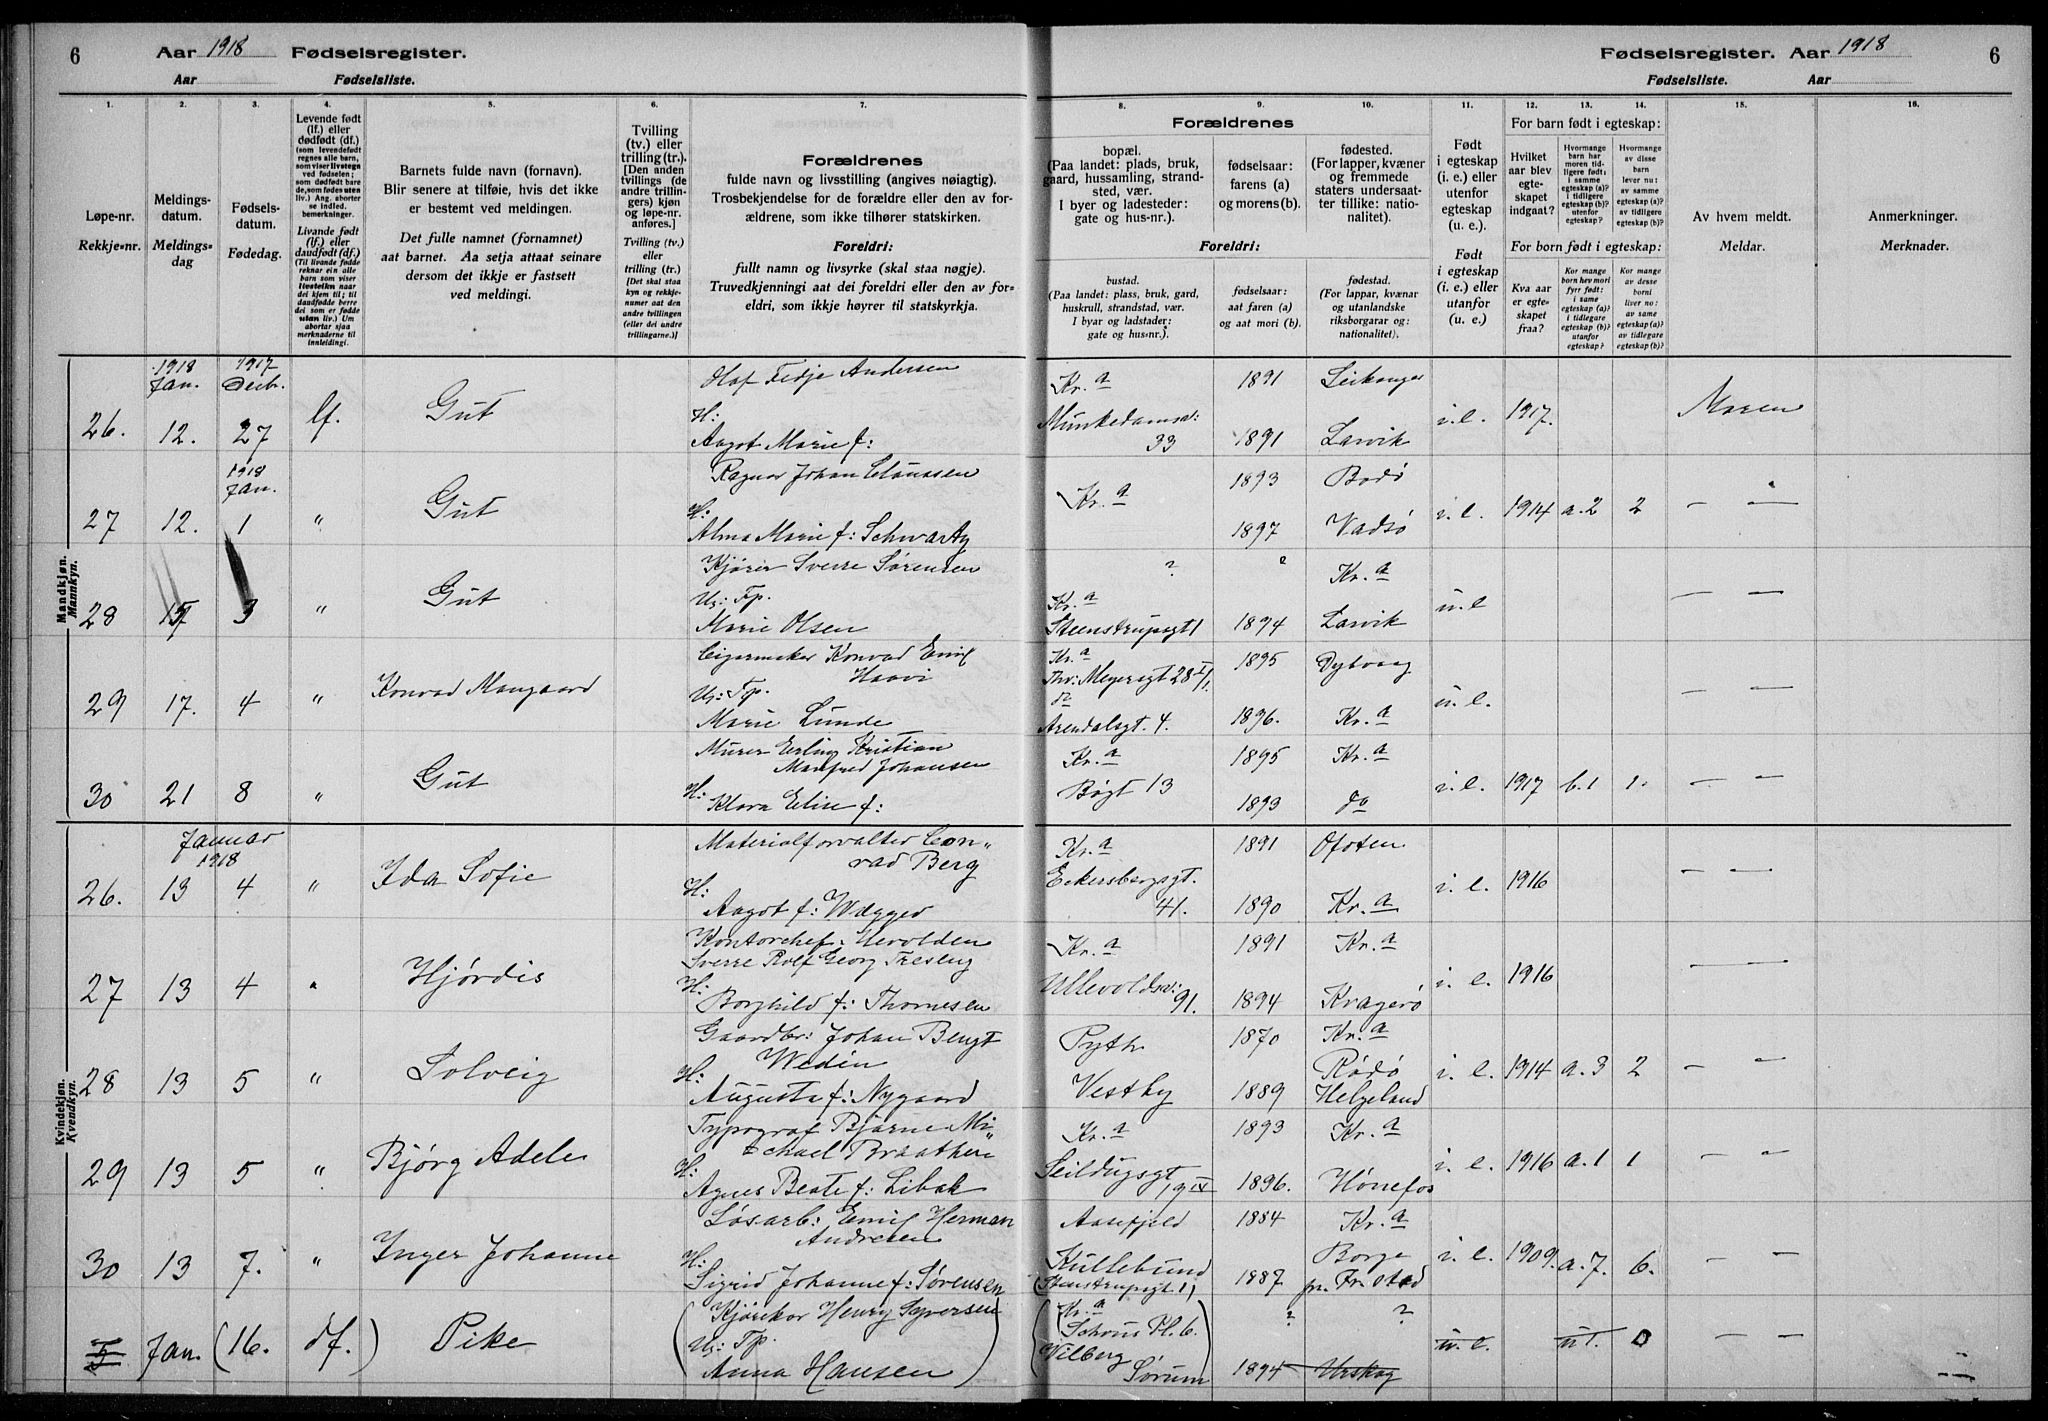 6 Aar 1918 Fødselsregister.
Aar Fødselsliste.
Fødselsregister. Aar 1918 6
Fødselsliste. Aar
1. 2. 3. 4. 5. 6. 7. 8. 9. 10. 11. 12. 13. 14. 15. 16.
Løpe-nr.
Rekkje-nr.
Meldings-
datum.
Meldings-
dag
Fødsels-
datum.
Fødedag.
Levende født
(lf.) eller
dødfødt (df.)
(som levendefødt
regnes alle barn,
som viser livstegn
ved fødselen;
som dødfødt bare
de, som fødes uten
liv.) Ang. aborter
se indled.
bemerkninger.
Livande født
(lf.) eller
daudfødt (df.)
(Til livande fødde
reknar ein alle
barn som viser
livsteikn naar
dei kjem til; til
daudfødde berre
dei som er fødde
utan liv.) Um
abortar sjaa
merknaderne til
innleidingi.
Barnets fulde navn (fornavn).
Blir senere at tilføie, hvis det ikke
er bestemt ved meldingen.
Det fulle namnet (fornamnet)
aat barnet. Aa setja attaat seinare
dersom det ikkje er fastsett
ved meldingi.
Tvilling
(tv.) eller
trilling (tr.).
[Den anden
tvillings (de
andre trillin-
gers) kjøn
og løpe-nr.
anføres.]
Tvilling (tv.)
eller
trilling (tr.)
[Det skal staa
kyn og rekkje-
numer aat den
andre tvillingen
(eller dei andre
trillingarne.)]
Forældrenes
fulde navn og livsstilling (angives nøiagtig).
Trosbekjendelse for de forældre eller den av for-
ældrene, som ikke tilhører statskirken.
Foreldri:
fullt namn og livsyrke (skal staa nøgje).
Truvedkjenningi aat dei foreldri eller den av for-
eldri, som ikkje høyrer til statskyrkja.
Forældrenes
bopæl.
(Paa landet: plads, bruk,
gaard, hussamling, strand-
sted, vær.
I byer og ladesteder:
gate og hus-nr.).
fødselsaar:
farens (a)
og morens (b).
fødested.
(For lapper, kvæner
og fremmede
staters undersaat-
ter tillike: natio-
nalitet).
Foreldri:
bustad.
(Paa landet: plass, bruk, gard,
huskrull, strandstad, vær.
I byar og ladstader:
gate og hus-nr.).
fødselsaar:
aat faren (a)
og aat mori (b).
fødestad.
(For lappar, kvænar
og utanlandske
riksborgarar og:
nationalitet).
Født
i egteskap
(i. e.) eller
utenfor
egteskap
(u. e.).
Født
i egteskap
(i. e.) eller
utanfor
(u. e.).
For barn født i egteskap:
Hvilket
aar blev
egte-
skapet
indgaat?
Hvormange
barn har
moren tid-
ligere født:
i samme
egteskap (a)?
i tidligere
egteskap (b)?
utenfor
egteskap?
Hvormange
av disse
lever nu:
av samme
egteskap (a)?
av tidligere
egteskap (b)?
For born født i egteskap:
Kva aar
er egte-
skapet
fraa?
Kor mange
born hev mori
fyrr født:
i same
egteskap (a)?
i tidlegare
egteskap (b)?
utanfor
egteskap?
Kor mange
av desse
borni
liver no:
av same
egteskap (a)?
av tidlegare
egteskap (b)?
Av hvem meldt.
Meldar.
Anmerkninger.
Merknader.
Mandkjøn.
Mannkyn.
1918 Jan. 1917 Decb.
26. 12. 27 lf. Gut
Olaf Fedje Andersen
H:
Aagot Marie f:
Kr.a
Munkedamsv:
33
1891
1891
Leikanger
Larvik
i. e. 1917. Moren
1918
Jan.
27 12. 1 " Gut
Ragnar Johan Claussen
H:
Alma Marie f: Schwartz
Kr.a
1893
1897
Bodø
Vadsø
i. e. 1914 a. 2 2 — —
28 15 3 " Gut
Kjører Sverre Sørensen
Ug: Tp.
Marie Olsen
?
Kr.a
Steenstrupsgt 1
?
1894
Kr.a
Larvik
u. e — —
29 17. 4 " Konrad Maugaard
Cigarmaker Konrad Emil
Haavi
Ug: Tp.
Marie Lunde
Kr.a
Thv: Meyersgt 28 II/1.
do
Arendalsgt. 4.
1895
1896.
Dybvaag
Kr.a
u. e. — —
30 21 8 " Gut
Murer Erling Kristian
Manfred Johansen
H:
Klara Elise f:
Kr.a
Bøgt 13
1895
1893
Kr.a
do
i. e. 1917 b. 1 1. — —
Kvindekjøn.
Kvendkyn.
Januar
1918
26. 13 4 " Ida Sofie
Materialforvalter Con„
rad Berg
H:
Aagot f: Wægger
Kr.a
Eckersbergsgt.
41.
1891
1890
Ofoten
Kr.a
i. e. 1916 — —
27 13 4 " Hjørdis
Kontorchef:
Sverre Rolf Georg
H:
Borghild f: Thomesen
Kr.a
Ullevoldsv:
91.
1891
1894
Kr.a
Kragerø
i. e. 1916 — —
28 13 5 " Solveig
Gaardbr: Johan Bengt
Wedin
H:
Augusta f: Nygaard
Pyth
Vestby
1870
1889
Kr.a
Rødø
Helgeland
i. e. 1914 a. 3 2 — —
29 13 5 " Bjørg Adele
Typograf Bjarne Mi„
chael Braathen
H:
Agnes Beate f: Libak
Kr.a
Seildugsgt
19 IV
1893
1896.
Kr.a
Hønefos
i. e. 1916 a. 1 1 — —
30 13 7. " Inger Johanne
Løsarb: Emil Herman
Andresen
H:
Sigrid Johanne f: Sørensen
Aasefjeld
Kullebund
(Stenstrupsgt 1)
1884
1887
Kr.a
Borge
pr. Fr.stad
i. e. 1909. a. 7. 6. — —
5 Jan. (16. df.) Pike
(Kjørekar Henry Syversen
Ug: Tp
Anna Hansen)
(Kr.a
Schous Pl. 6.)
(Vilberg
Sørum
?
1894
?
Urskog
u. e. u 1. 0 — —